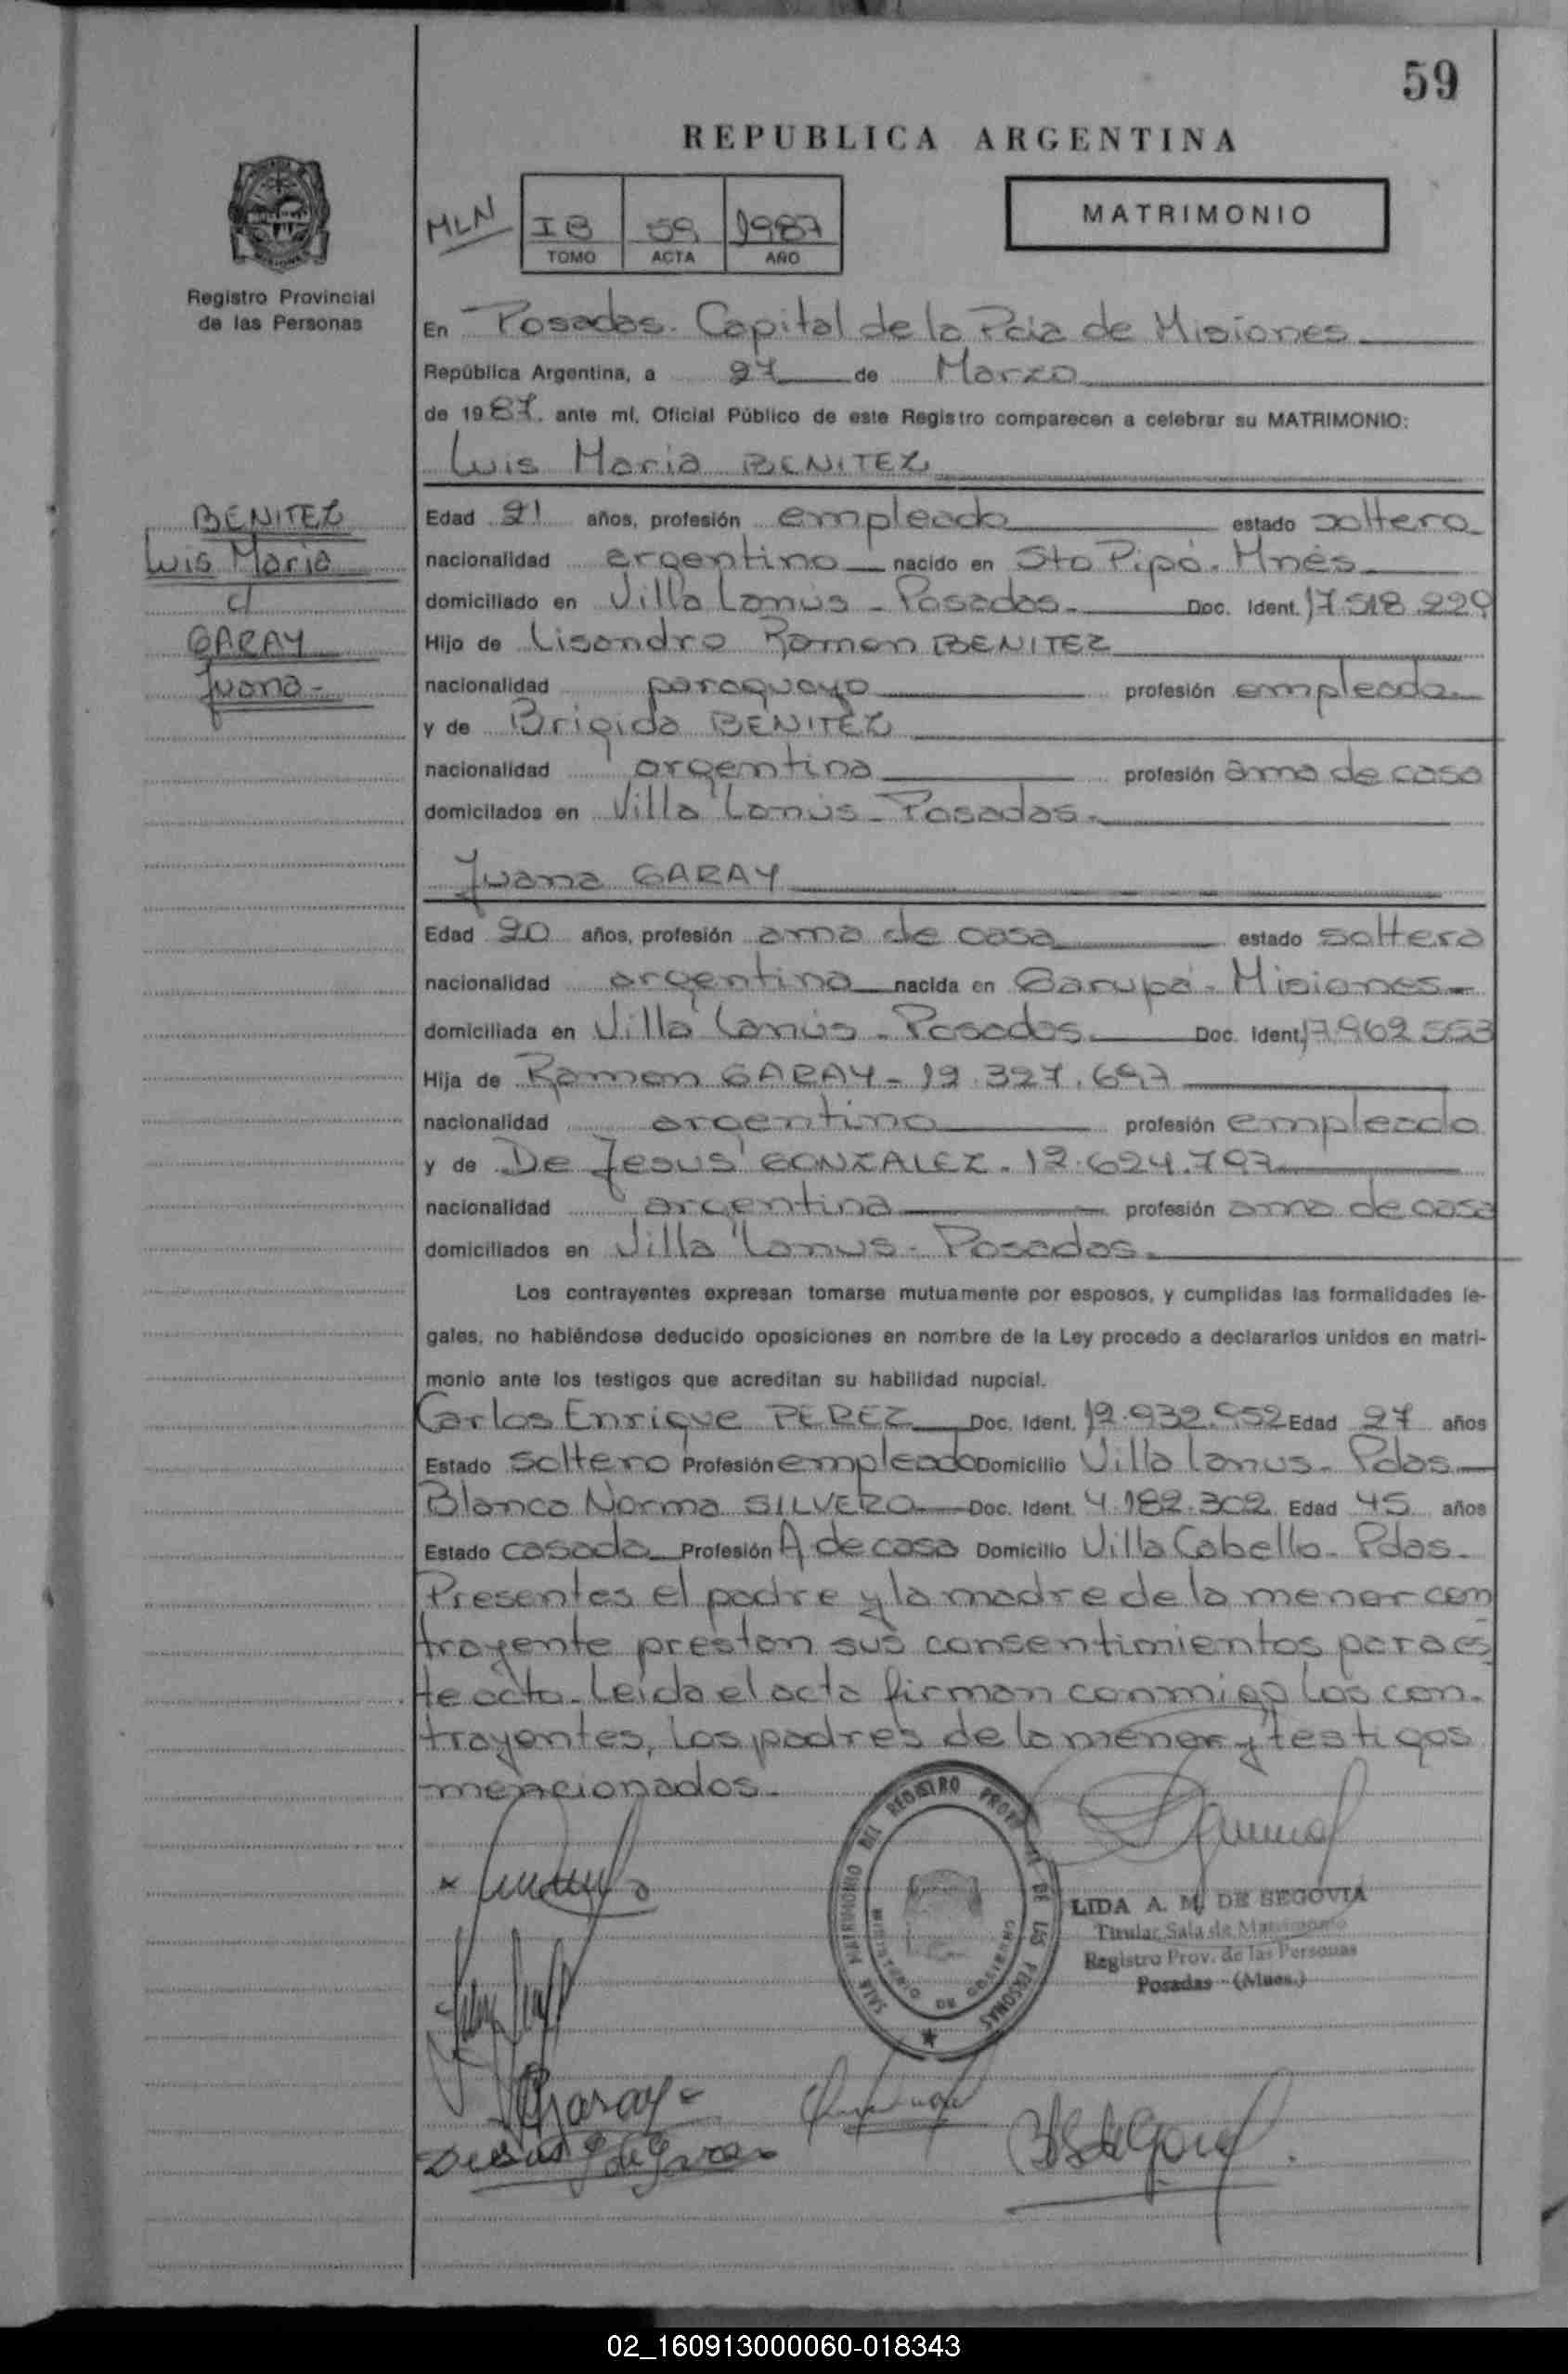 59
REPUBLICA ARGENTINA
MLN
IB 59 1987
TOMO ACTA AÑO
MATRIMONIO
Registro Provincial
de las Personas
En Posadas. Capital de la Pcia de Misiones
República Argentina, a 27 de Marzo
de 1987. ante mí, Oficial Público de este Registro comparecen a celebrar su MATRIMONIO:
Luis Maria BENITEZ
BENITEZ
Luis Maria
c/
GARAY
Juana-
Edad 21 años, profesión empleado estado soltero
nacionalidad argentino nacido en Sto Pipó. Mnes
domiciliado en Villa Lanus - Posadas. Doc. Ident. 17.518.229
Hijo de Lisandro Ramon BENITEZ
nacionalidad paraguayo profesión empleado
y de Brigida BENITEZ
nacionalidad argentina profesión ama de casa
domiciliados en Villa Lanús - Posadas.
Juana GARAY
Edad 20 años, profesión ama de casa estado soltera
nacionalidad argentina nacida en Garupá - Misiones
domiciliada en Villa Lanús - Posadas Doc. Ident. 17.962.553
Hija de Ramon GARAY - 12.327.697
nacionalidad argentino profesión empleado
y de De Jesus GONZALEZ - 12.624.797
nacionalidad argentina profesión ama de casa
domiciliados en Villa Lanus - Posadas.
Los contrayentes expresan tomarse mutuamente por esposos, y cumplidas las formalidades le-
gales, no habiéndose deducido oposiciones en nombre de la Ley procedo a declararlos unidos en matri-
monio ante los testigos que acreditan su habilidad nupcial.
Carlos Enrique PEREZ Doc. Ident. 12.932.952 Edad 27 años
Estado soltero Profesión empleado Domicilio Villa Lanus - Pdas
Blanca Norma SILVERO Doc. Ident. 4.182.302 Edad 45 años
Estado casada Profesión A de casa Domicilio Villa Cabello - Pdas.
Presentes el padre y la madre de la menor con
trayente prestan sus consentimientos para es
te acto. Leida el acta firman conmigo los con.
trayentes, los padres de la menor y testigos
mencionados.
SALA MATRIMONIO DEL REGISTRO PROVINCIAL DE LAS PERSONAS
MINISTERIO DE GOBIERNO
LIDA A. M. DE SEGOVIA
Titular Sala de Matrimonio
Registro Prov. de las Personas
Posadas - (Mnes.)
Garay
02_160913000060-018343